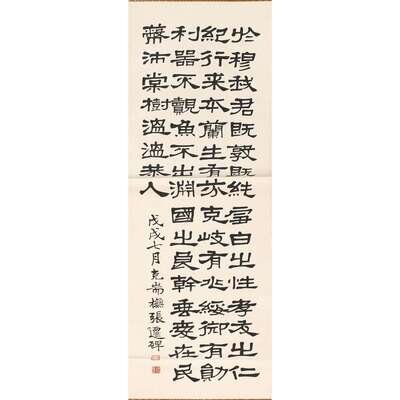 於穆我君既敦既純雪白之性孝友之仁
紀行来本蘭生有芬克岐有兆綏御有勛
利器不覿魚不出淵國之良幹垂愛在民
蔽沛棠樹溫溫恭人
戊戌七月克耑橅張遷碑